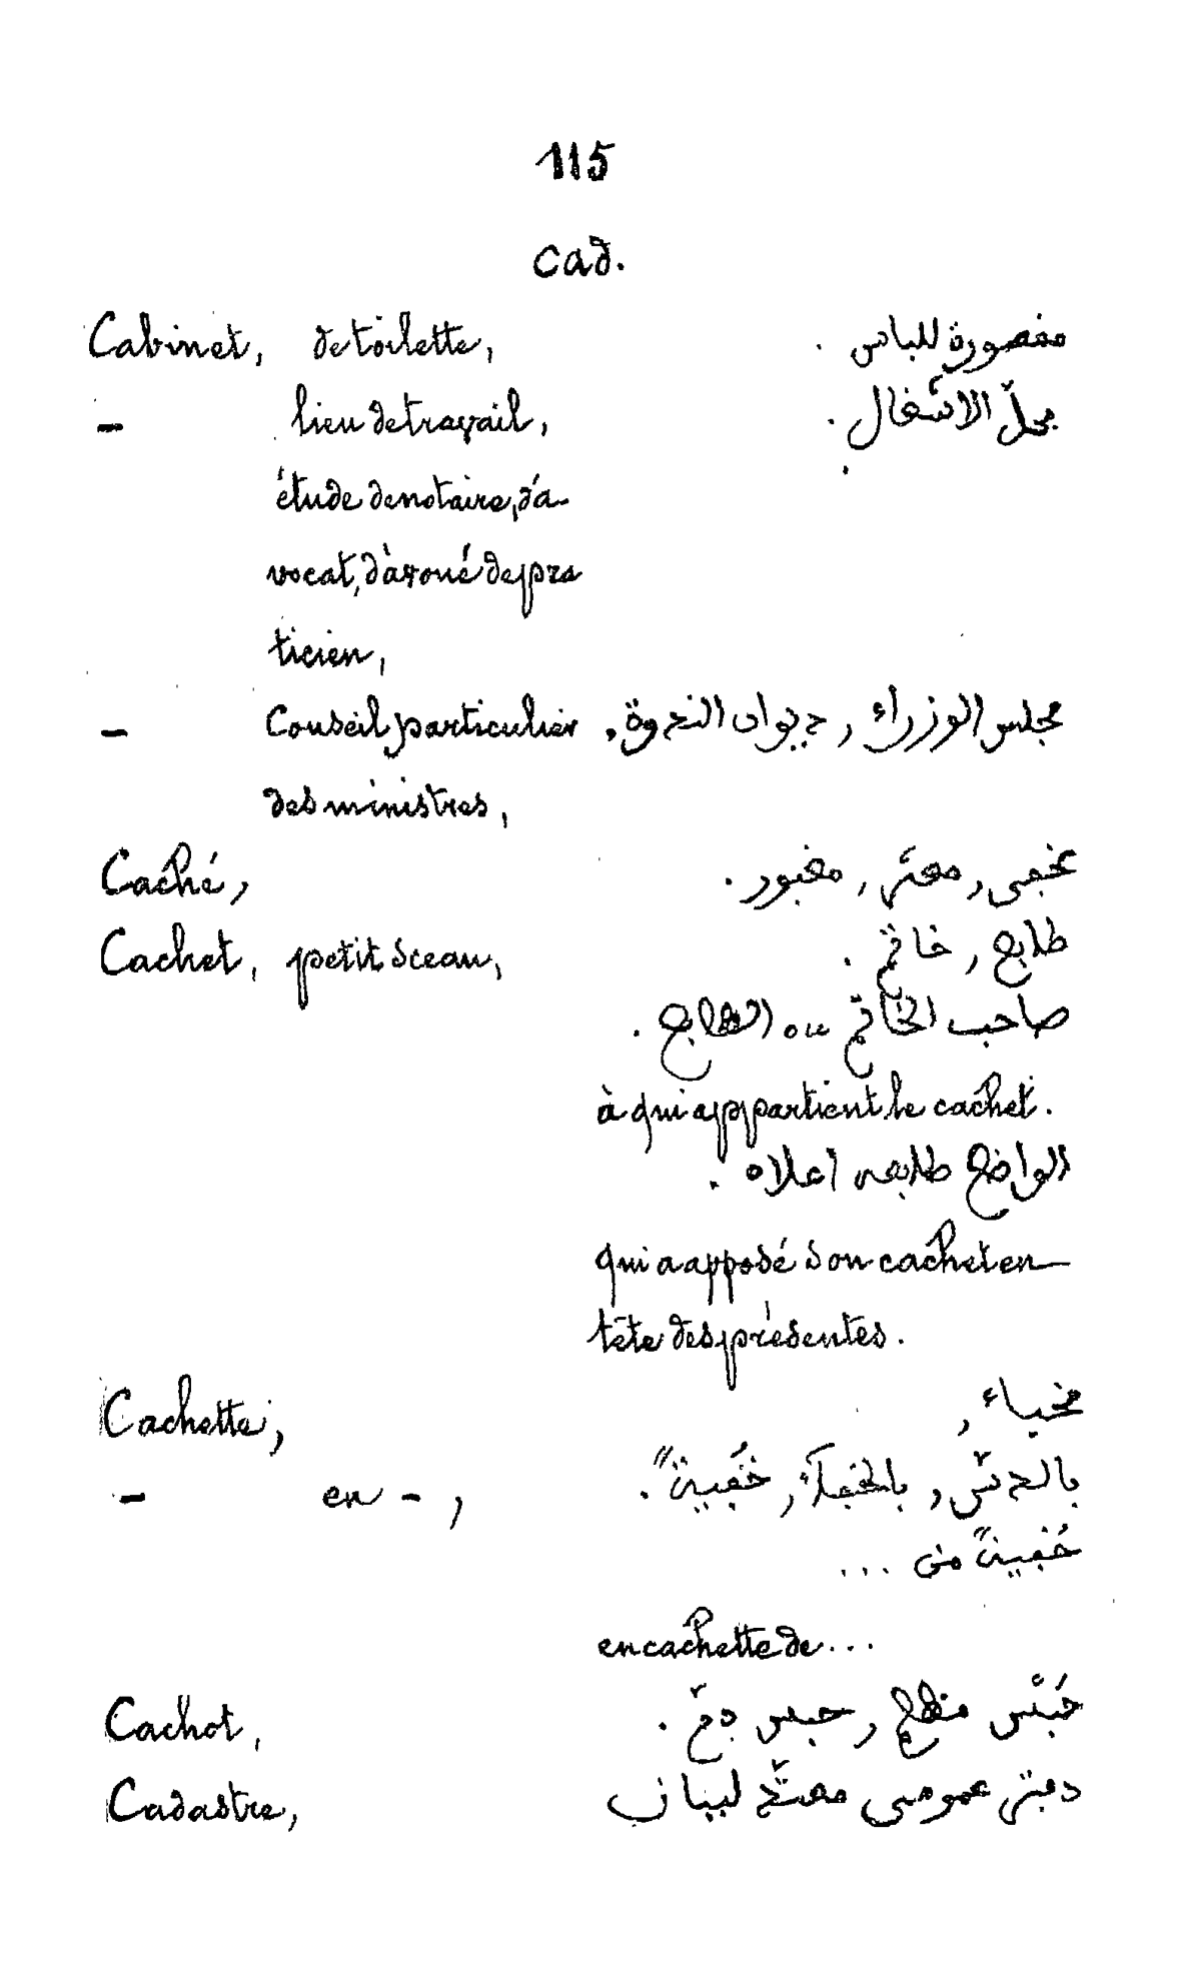 115
Cad.
Cabinet, de toilette, مقصورة للباس .
— lieu de travail, محلّ الاشغال .
étude de notaire, d'a-
vocat, d'avoué de pra
ticien,
— Conseil particulier مجلس الوزراء , ديوان الندوة .
des ministres,
Caché, مخفى , مستّر , مقبور .
Cachet, petit sceau, طابع , خاتم .
صاحب الخاتم ou الطابع .
à qui appartient le cachet.
الواضع طابعه اعلاه .
qui a apposé son cachet en
tête des présentes.
Cachette, مخباء ,
— en - , بالدسّ , بالخفاء , خُفْيةً .
خُفيةً من ...
en cachette de ...
Cachot, حَبْس مظلم , حبس .
Cadastre, دفتر عمومى معدّ لبيان